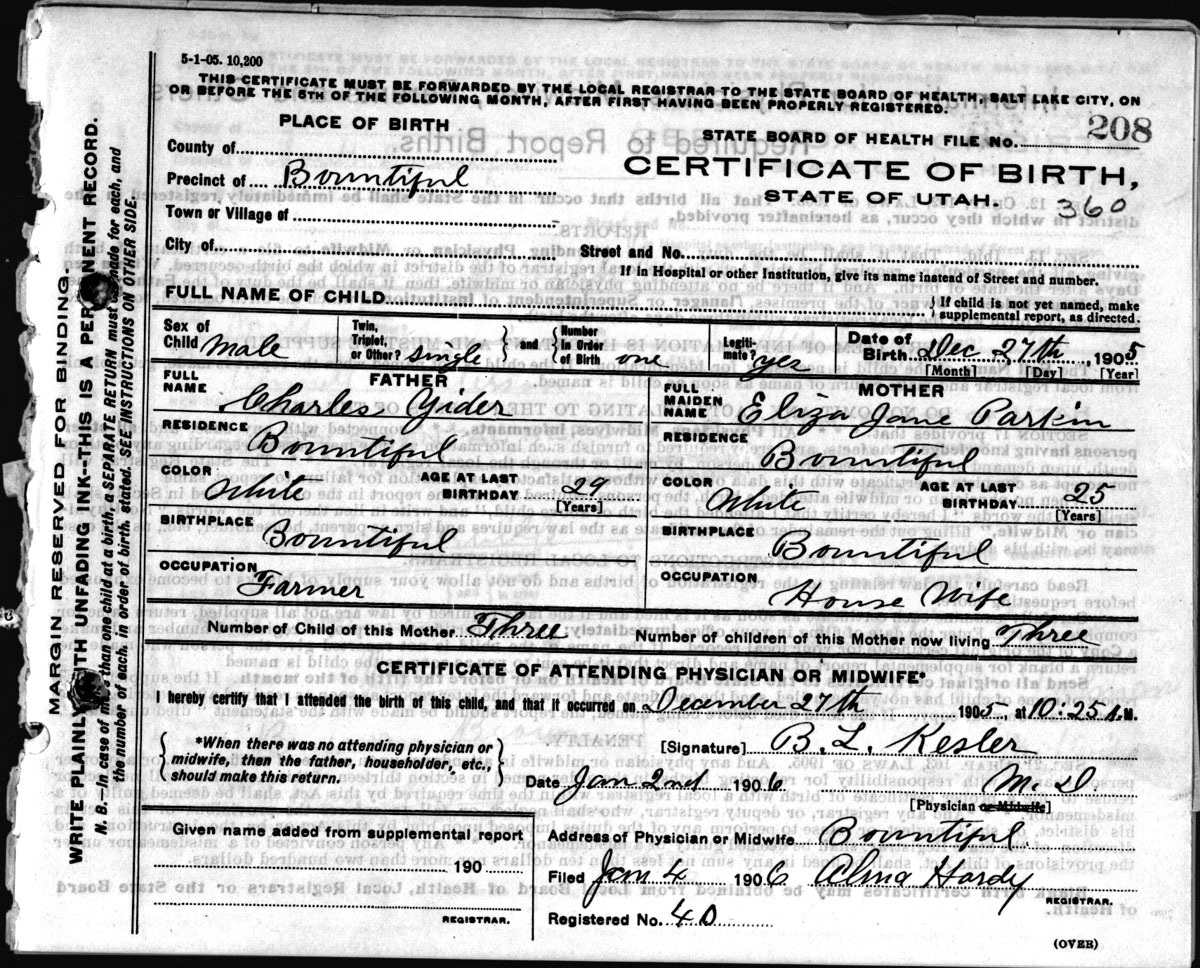 5-1-05. 10,200
THIS CERTIFICATE MUST BE FORWARDED BY THE LOCAL REGISTRAR TO THE STATE BOARD OF HEALTH, SALT LAKE CITY, ON
OR BEFORE THE 5TH OF THE FOLLOWING MONTH, AFTER FIRST HAVING BEEN PROPERLY REGISTERED.
PLACE OF BIRTH
STATE BOARD OF HEALTH FILE NO. 208
County of
CERTIFICATE OF BIRTH,
Precinct of Bountiful
STATE OF UTAH. 360
Town or Village of
City of
Street and No.
If in Hospital or other Institution, give its name instead of Street and number.
FULL NAME OF CHILD
} If child is not yet named, make
supplemental report, as directed.
Sex of Child Male
Twin, Triplet, or Other? single } and { Number in Order of Birth one
Legiti-mate? yes
Date of Birth Dec 27th, 1905
[Month] [Day] [Year]
FATHER
FULL NAME Charles Yider
RESIDENCE Bountiful
COLOR White AGE AT LAST BIRTHDAY 29
[Years]
BIRTHPLACE Bountiful
OCCUPATION Farmer
MOTHER
FULL MAIDEN NAME Eliza Jane Parkin
RESIDENCE Bountiful
COLOR White AGE AT LAST BIRTHDAY 25
[Years]
BIRTHPLACE Bountiful
OCCUPATION House Wife
Number of Child of this Mother Three Number of children of this Mother now living Three
CERTIFICATE OF ATTENDING PHYSICIAN OR MIDWIFE*
I hereby certify that I attended the birth of this child, and that it occurred on December 27th 1905, at 10:25 A.M.
{ *When there was no attending physician or
midwife, then the father, householder, etc.,
should make this return. }
[Signature] B. L. Kesler
Date Jan 2nd 1906 M. D
[Physician or Midwife]
Given name added from supplemental report
190
REGISTRAR.
Address of Physician or Midwife Bountiful.
Filed Jan 4 1906 Alma Hardy
REGISTRAR.
Registered No. 40
(OVER)
MARGIN RESERVED FOR BINDING.
WRITE PLAINLY WITH UNFADING INK--THIS IS A PERMANENT RECORD.
N. B.—In case of more than one child at a birth, a SEPARATE RETURN must be made for each, and
the number of each, in order of birth, stated. SEE INSTRUCTIONS ON OTHER SIDE.